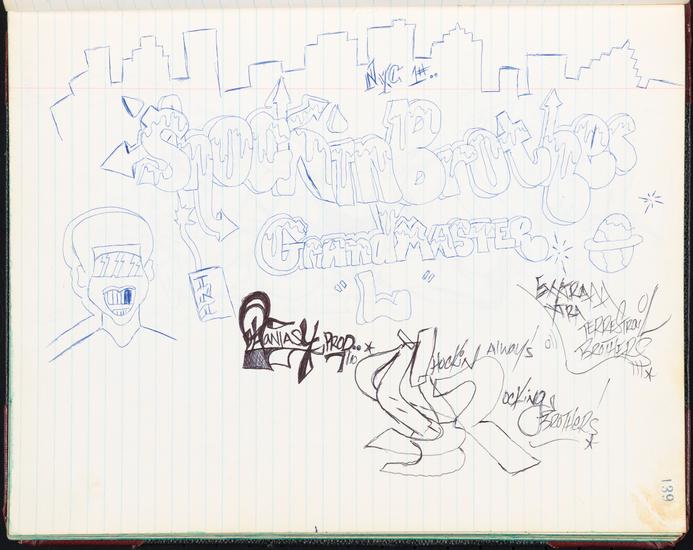 NYC 1#..
Shockin Brothers
GrandMASTER
"L"
FANTASY PROD...
SHOCKIN ALWAYS
ROCKING
BROTHERS!
EXTRA
TRA
TERRESTRIAL
BROTHERS
139